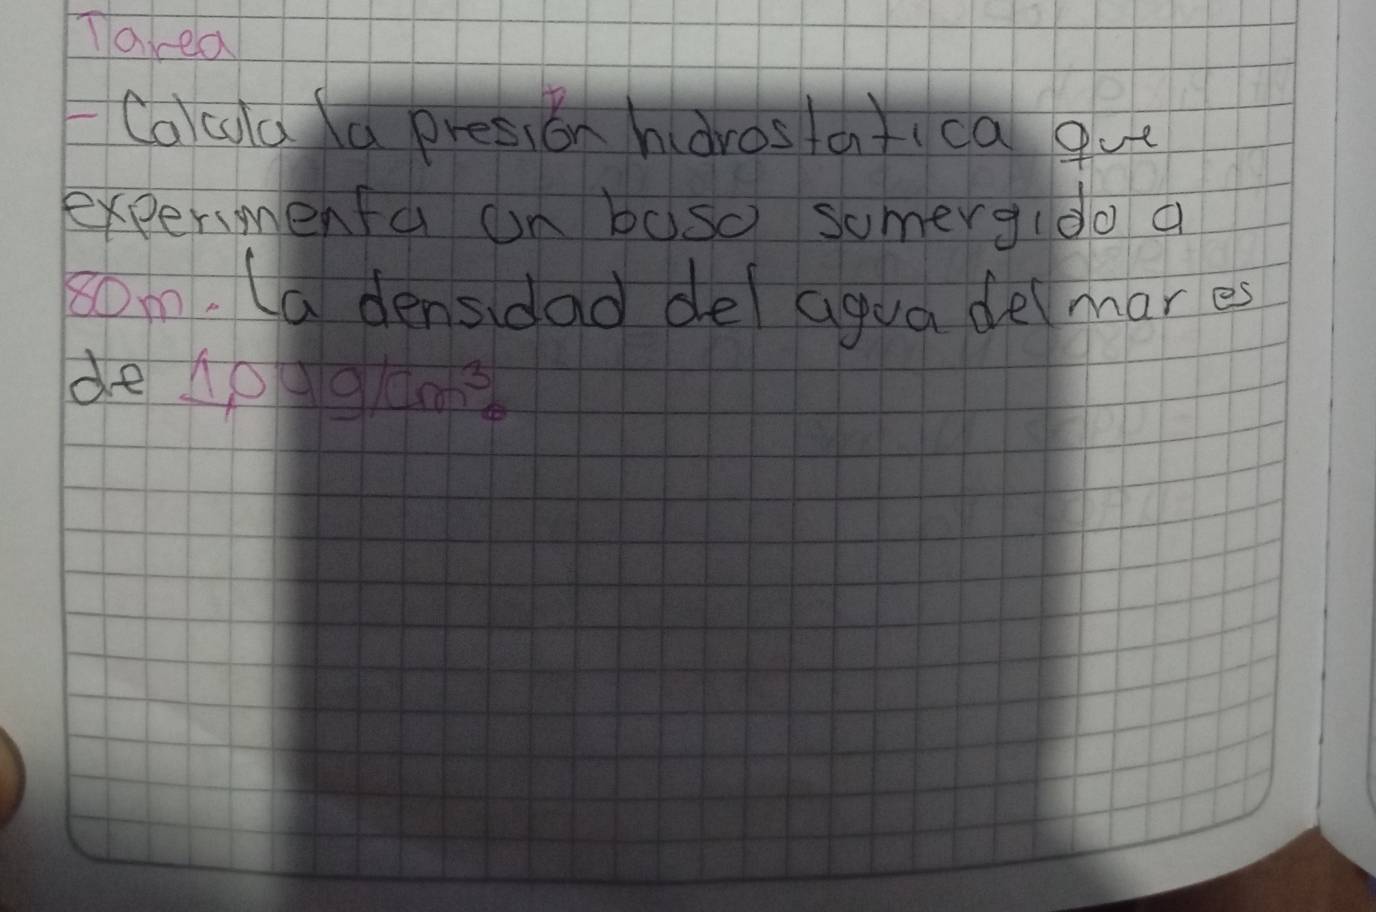 Tarea
- Calcula la presión hidrostatica que
experimenta un buso sumergido a
80m. La densidad del agua del mar es
de 1,04g/cm³.